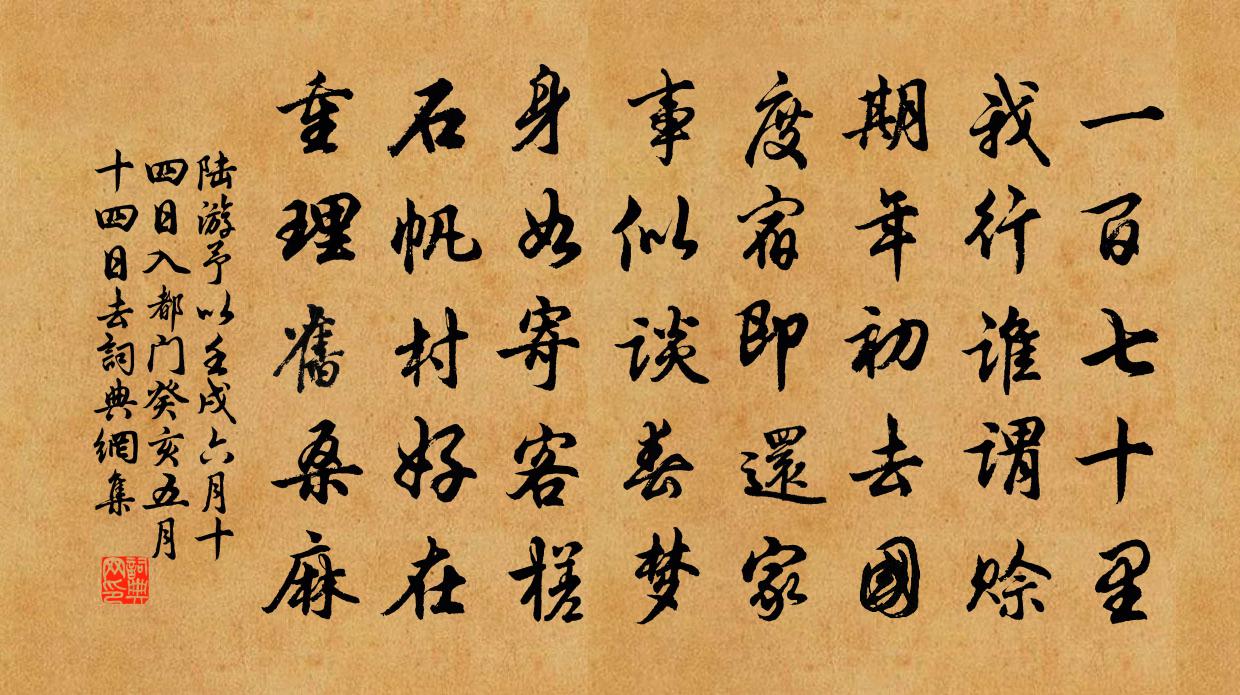 一百七十里
我行谁谓赊
期年初去國
度宿即還家
事似谈春梦
身如寄客槎
石帆村好在
重理舊桑麻
陆游予以壬戌六月十
四日入都门癸亥五月
十四日去詞典網集
詞典
网印